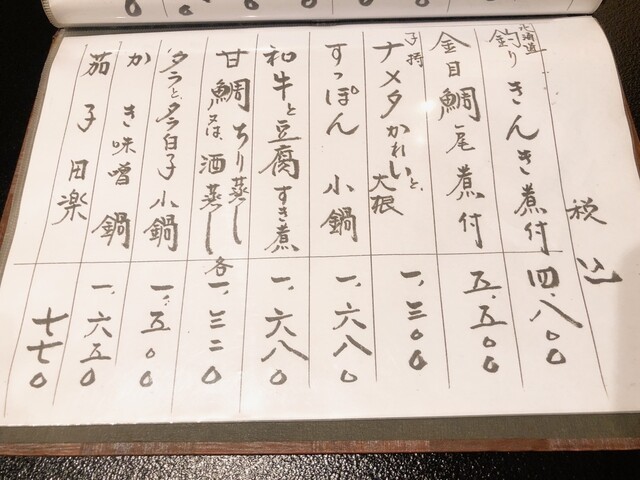 税込
北海道
釣りきんき煮付 四、八〇〇
金目鯛尾煮付 五、五〇〇
子持
ナメタかれいと、大根 一、三〇〇
すっぽん小鍋 一、六八〇
和牛と豆腐すき煮 一、六八〇
甘鯛ちり蒸し又は酒蒸し 各一、三二〇
タラと、タラ白子小鍋 一、五〇〇
かき味噌鍋 一、六五〇
茄子田楽 七七〇